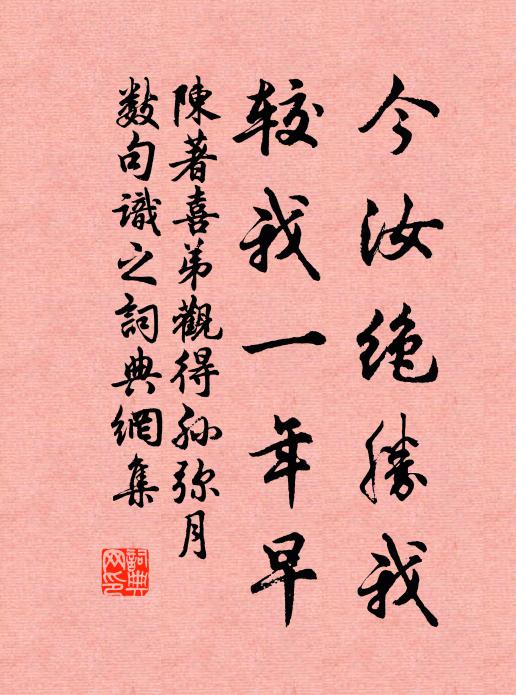 今汝绝勝我
较我一年早
陳著喜弟觀得孙弥月
数句識之詞典網集
詞典
网印